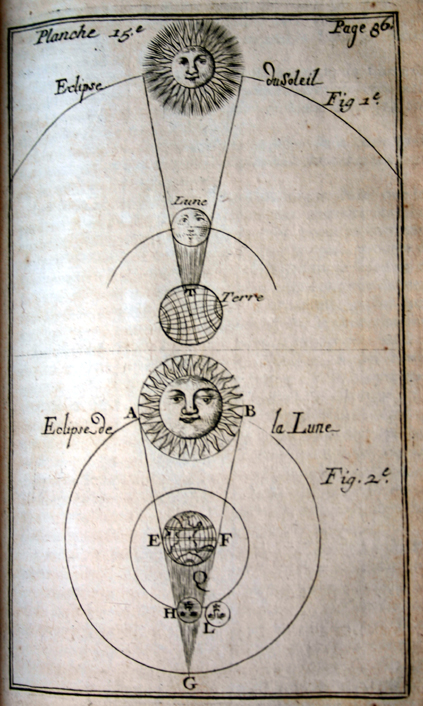 Planche 15.e Page 86.
Eclipse du Soleil
Fig 1.e
Lune
T
Terre
A B
Eclipse de la Lune
Fig. 2.e
E F
Q
H L
G